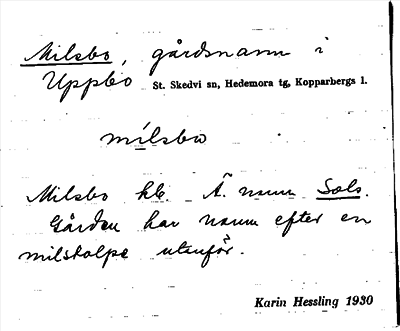 Milsbo, gårdsnamn i
Uppbo St. Skedvi sn, Hedemora tg, Kopparbergs l.
mílsbo
Milsbo hb. Ä. namn Sols.
Gården har namn efter en
milstolpe utanför.
Karin Hessling 1930